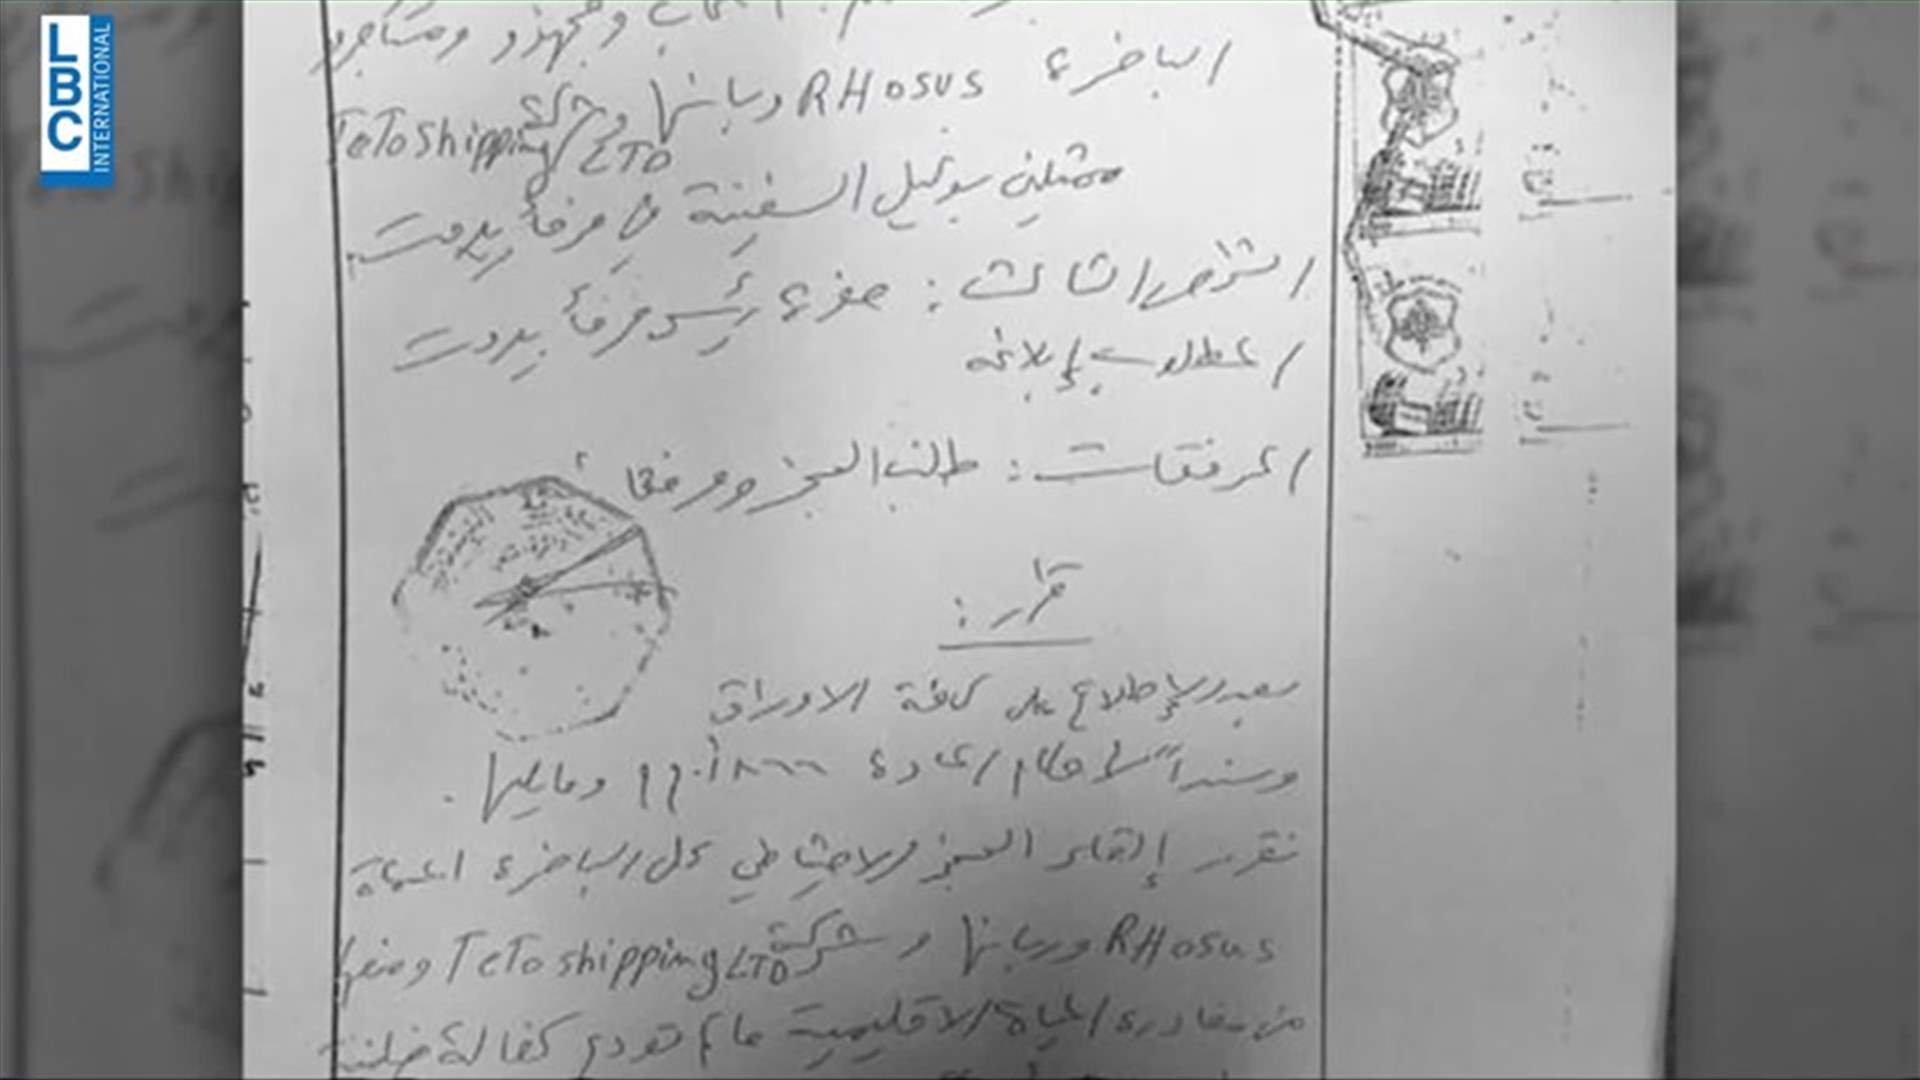 LBC
INTERNATIONAL
ومجهزو ومستأجرو
الباخرة RHOSUS وربانها وشركة
TeTo Shipping LTD
ممثلين بوكيل السفينة في مرفأ بيروت
الشخص الثالث : حضرة رئيس مرفأ بيروت
المطلوب إبلاغه
المرفقات : طلب الحجز ومرفقاته
قرار :
بعد الإطلاع على كافة الاوراق
وسنداً لأحكام المادة ٨٦٦ أ.م.م وما يليها .
نقرر إلقاء الحجز الاحتياطي على الباخرة المسماة
RHosus وربانها وشركة TeTo shipping LTD ومنعها
من مغادرة المياه الاقليمية ما لم تودع كفالة ضامنة